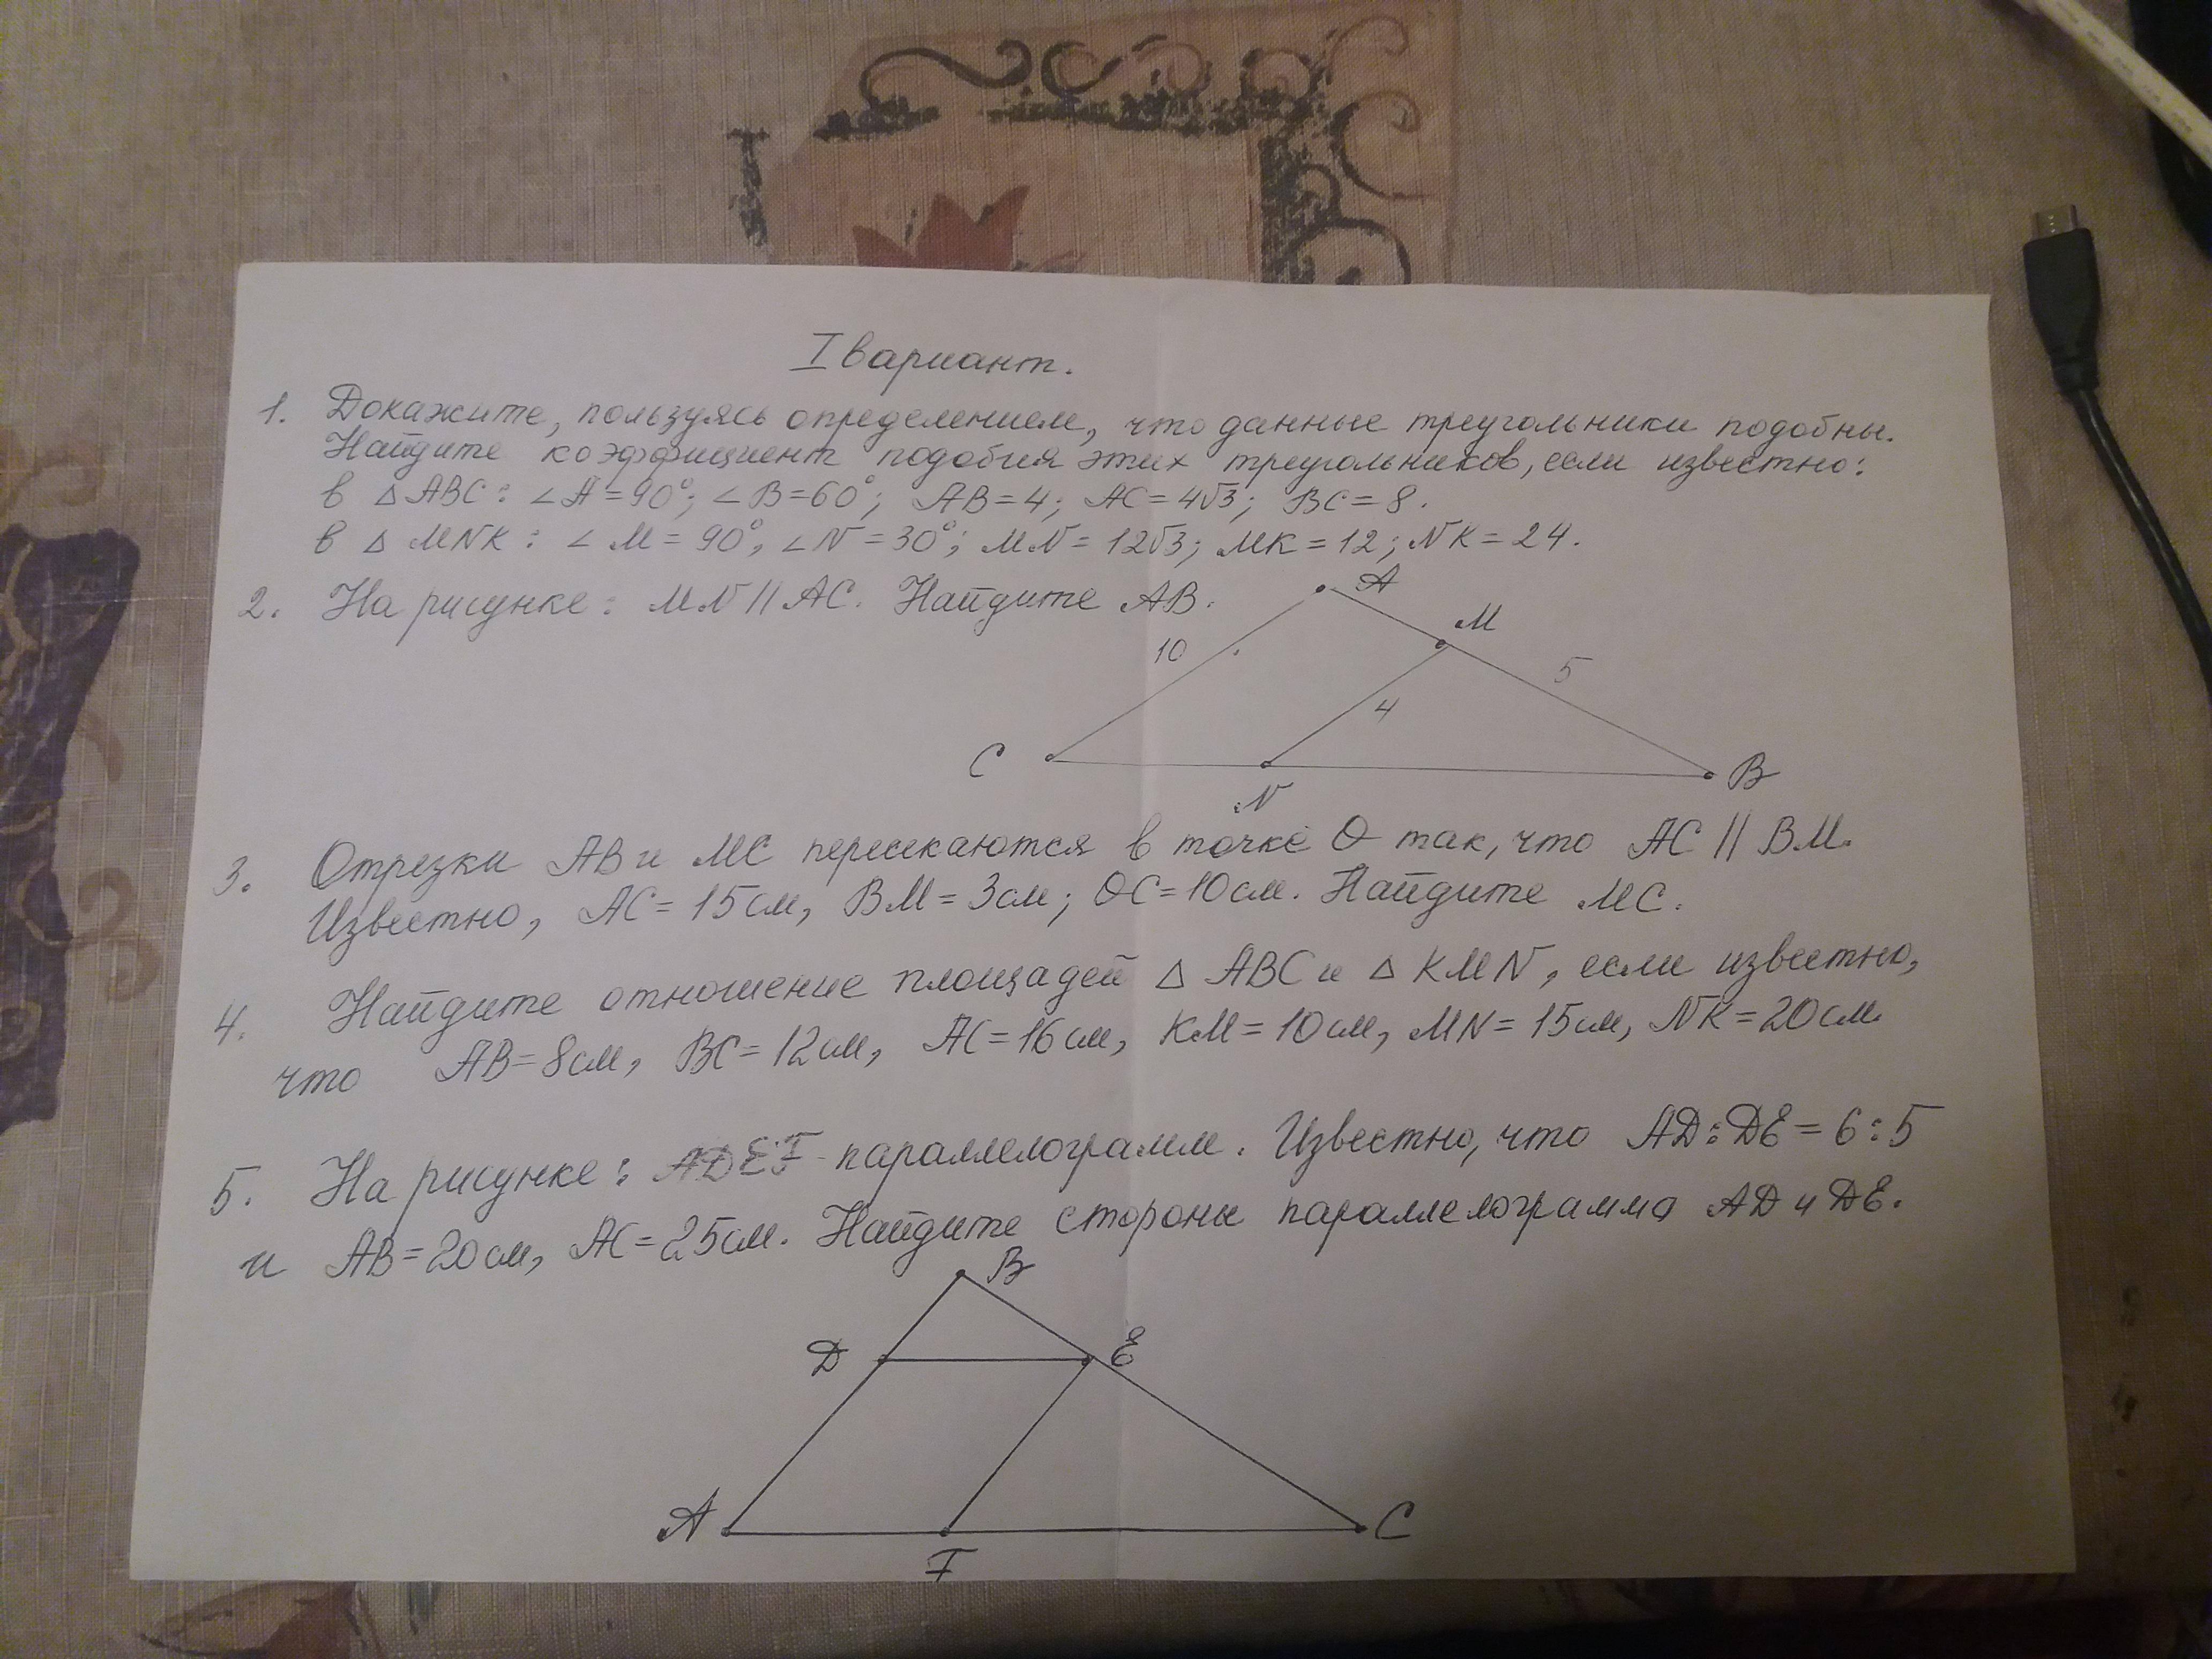 I вариант.
1. Докажите, пользуясь определением, что данные треугольники подобны.
Найдите коэффициент подобия этих треугольников, если известно:
в △ ABC: ∠A = 90°; ∠B = 60°; AB = 4; AC = 4√3; BC = 8.
в △ MNK: ∠M = 90°, ∠N = 30°; MN = 12√3; MK = 12; NK = 24.
2. На рисунке: MN || AC. Найдите AB.
A
M
10
5
4
C
B
N
3. Отрезки AB и MC пересекаются в точке O так, что AC || BM.
Известно, AC = 15 см, BM = 3 см; OC = 10 см. Найдите MC.
4. Найдите отношение площадей △ ABC и △ KMN, если известно,
что AB = 8 см, BC = 12 см, AC = 16 см, KM = 10 см, MN = 15 см, NK = 20 см.
5. На рисунке: ADEF - параллелограмм. Известно, что AD:DE = 6:5
и AB = 20 см, AC = 25 см. Найдите стороны параллелограмма AD и DE.
B
D
E
A
C
F